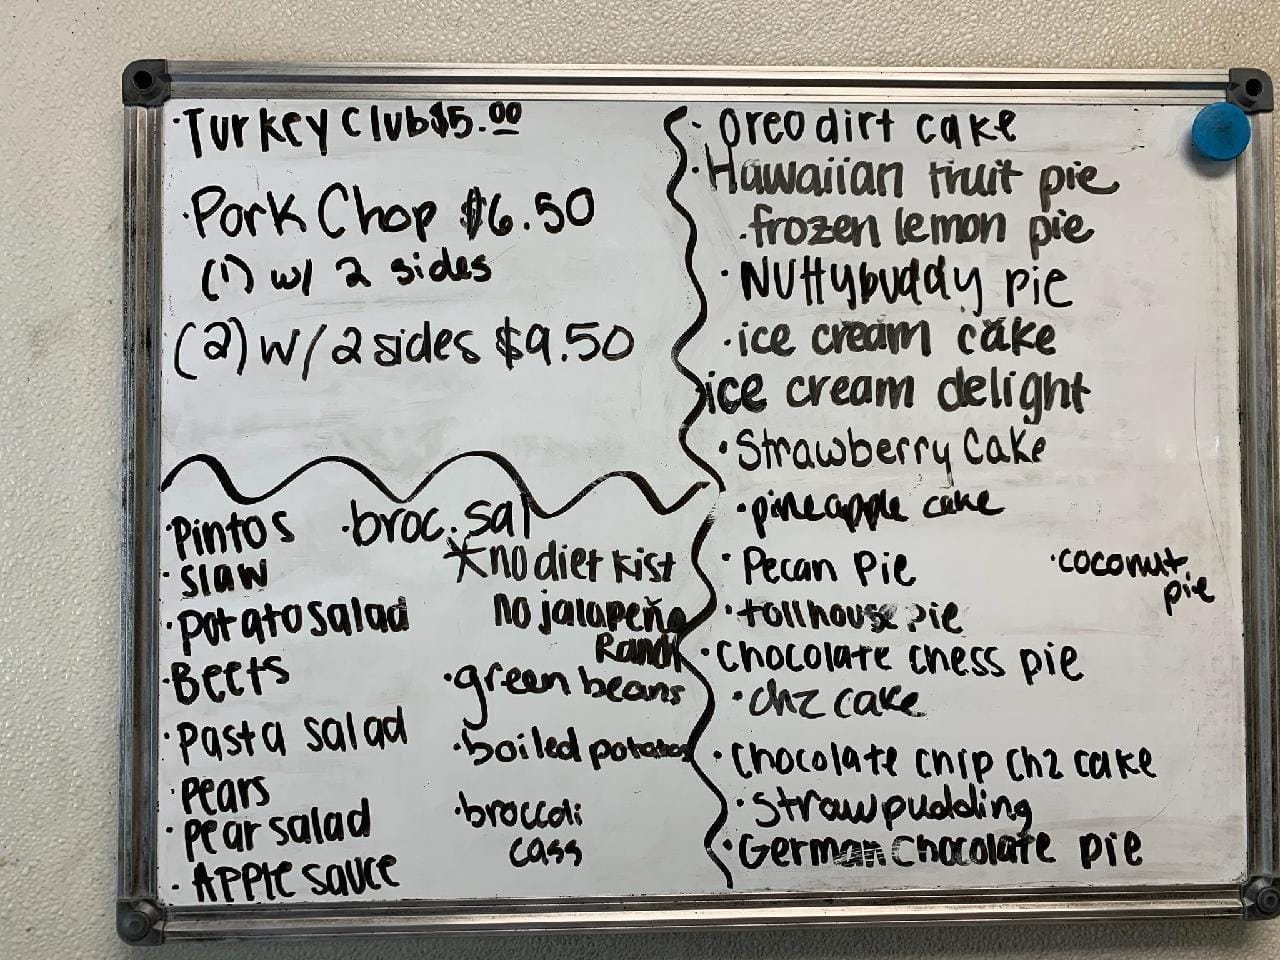 ·Turkey Club $5.00
·Pork Chop $6.50
(1) w/ 2 sides
(2) w/ 2 sides $9.50
·Pintos
·broc. sal
·slaw
*no diet kist
·potato salad
no jalapeño
Ranch
·Beets
·green beans
·pasta salad
·boiled potatoes
pears
·pear salad
·broccoli
cass
·Apple sauce
·oreo dirt cake
·Hawaiian fruit pie
·frozen lemon pie
·Nuttybuddy pie
·ice cream cake
ice cream delight
·Strawberry Cake
·pineapple cake
·Pecan Pie
·coconut
pie
·tollhouse pie
·Chocolate chess pie
·chz cake
·Chocolate chip chz cake
·straw pudding
·German chocolate pie